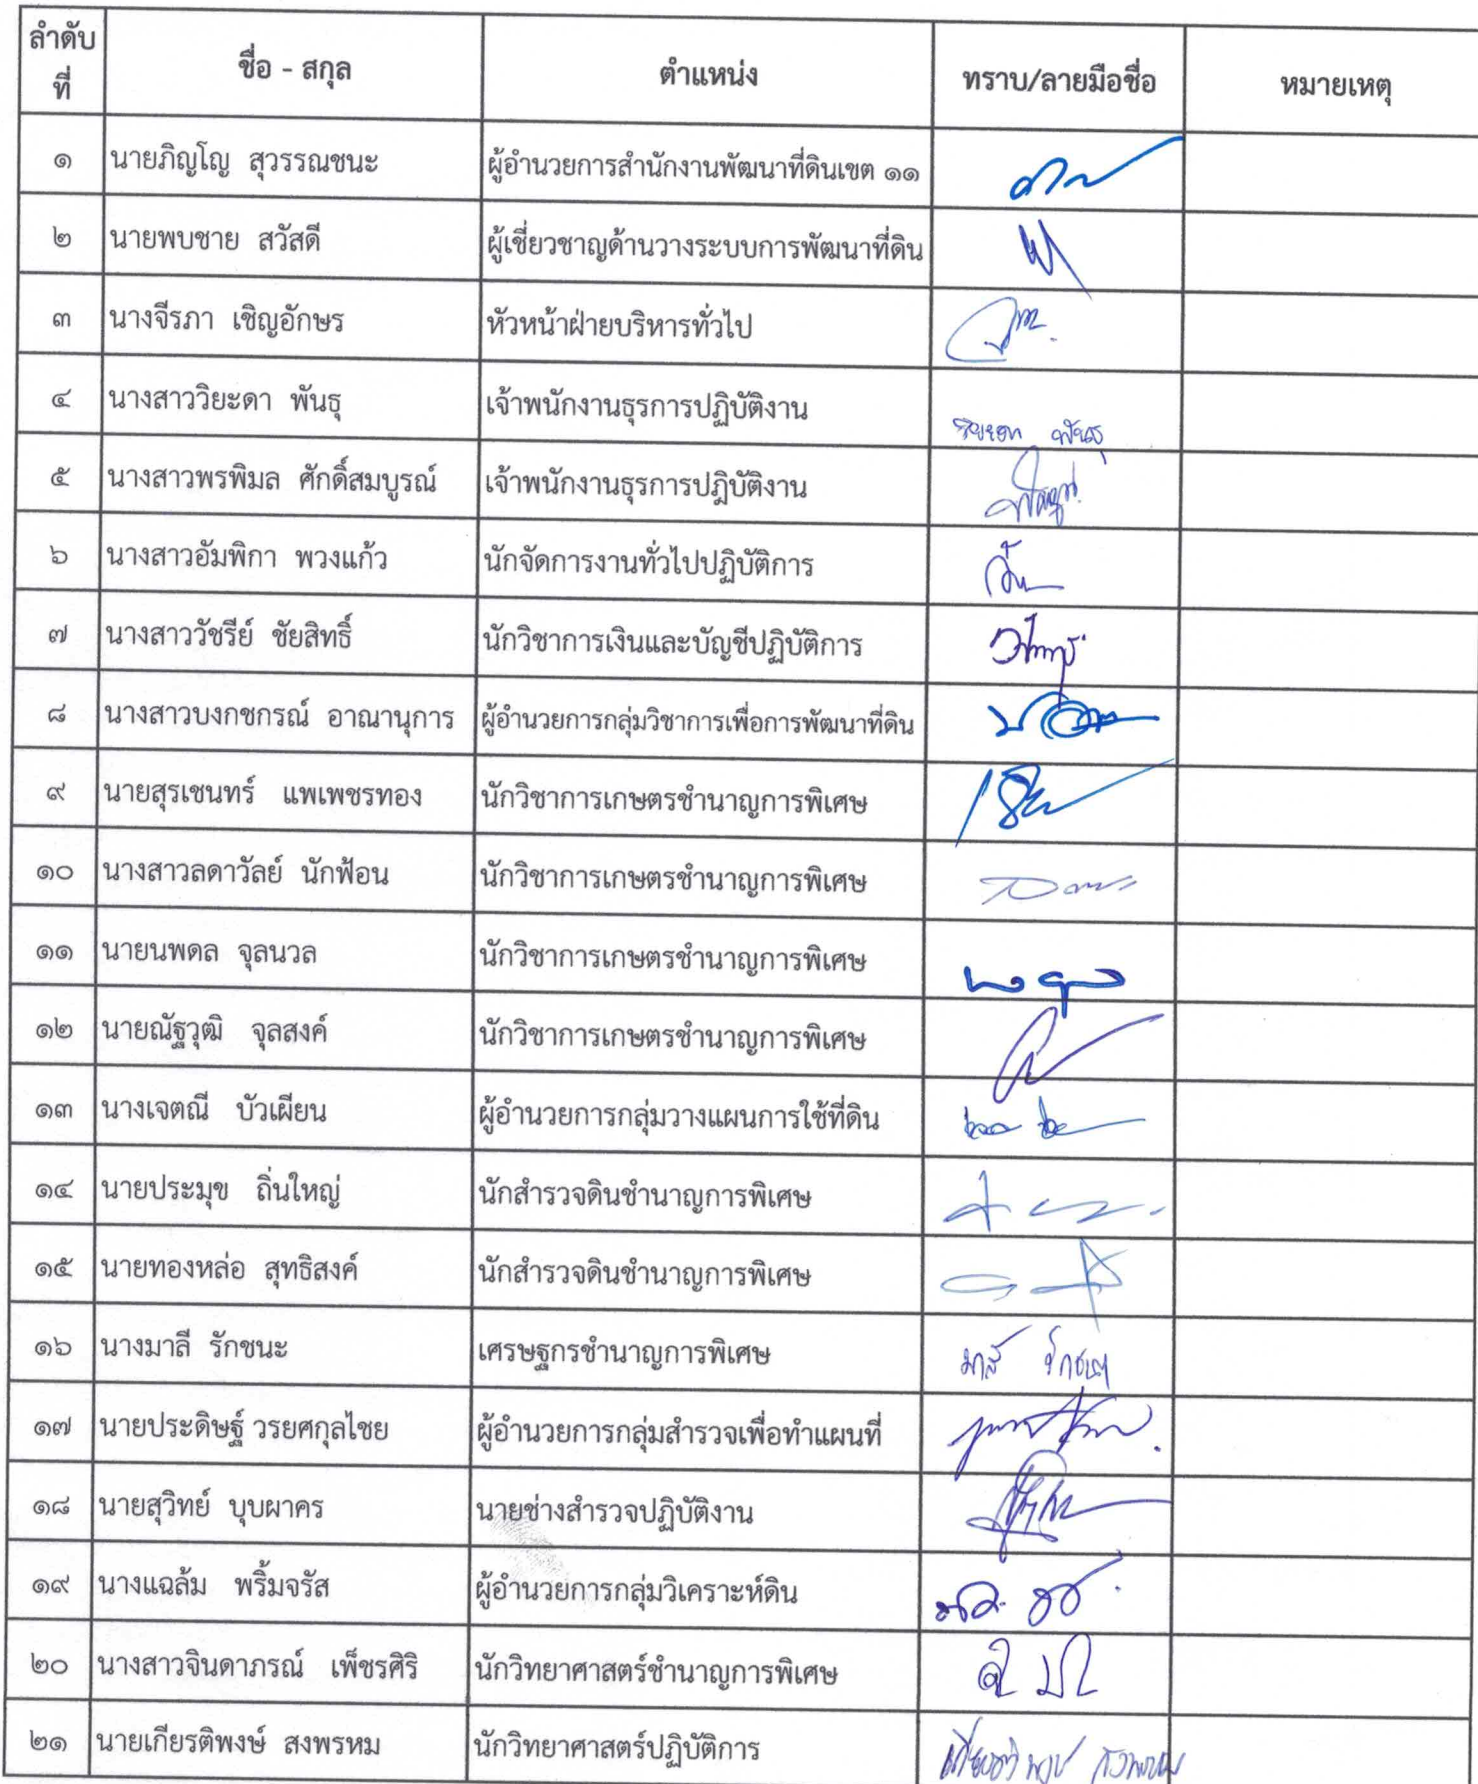 ลำดับ
ที่
ชื่อ - สกุล
ตำแหน่ง
ทราบ/ลายมือชื่อ
หมายเหตุ
๑ นายภิญโญ สุวรรณชนะ ผู้อำนวยการสำนักงานพัฒนาที่ดินเขต ๑๑
๒ นายพบชาย สวัสดี ผู้เชี่ยวชาญด้านวางระบบการพัฒนาที่ดิน
๓ นางจีรภา เชิญอักษร หัวหน้าฝ่ายบริหารทั่วไป
๔ นางสาววิยะดา พันธุ เจ้าพนักงานธุรการปฏิบัติงาน วิยะดา พันธุ
๕ นางสาวพรพิมล ศักดิ์สมบูรณ์ เจ้าพนักงานธุรการปฎิบัติงาน
๖ นางสาวอัมพิกา พวงแก้ว นักจัดการงานทั่วไปปฏิบัติการ
๗ นางสาววัชรีย์ ชัยสิทธิ์ นักวิชาการเงินและบัญชีปฏิบัติการ
๘ นางสาวบงกชกรณ์ อาณานุการ ผู้อำนวยการกลุ่มวิชาการเพื่อการพัฒนาที่ดิน
๙ นายสุรเชนทร์ แพเพชรทอง นักวิชาการเกษตรชำนาญการพิเศษ
๑๐ นางสาวลดาวัลย์ นักฟ้อน นักวิชาการเกษตรชำนาญการพิเศษ
๑๑ นายนพดล จุลนวล นักวิชาการเกษตรชำนาญการพิเศษ
๑๒ นายณัฐวุฒิ จุลสงค์ นักวิชาการเกษตรชำนาญการพิเศษ
๑๓ นางเจตณี บัวเผียน ผู้อำนวยการกลุ่มวางแผนการใช้ที่ดิน
๑๔ นายประมุข ถิ่นใหญ่ นักสำรวจดินชำนาญการพิเศษ
๑๕ นายทองหล่อ สุทธิสงค์ นักสำรวจดินชำนาญการพิเศษ
๑๖ นางมาลี รักชนะ เศรษฐกรชำนาญการพิเศษ มาลี รักชนะ
๑๗ นายประดิษฐ์ วรยศกุลไชย ผู้อำนวยการกลุ่มสำรวจเพื่อทำแผนที่
๑๘ นายสุวิทย์ บุบผาคร นายช่างสำรวจปฏิบัติงาน
๑๙ นางแฉล้ม พริ้มจรัส ผู้อำนวยการกลุ่มวิเคราะห์ดิน
๒๐ นางสาวจินดาภรณ์ เพ็ชรศิริ นักวิทยาศาสตร์ชำนาญการพิเศษ
๒๑ นายเกียรติพงษ์ สงพรหม นักวิทยาศาสตร์ปฏิบัติการ เกียรติพงษ์ สงพรหม